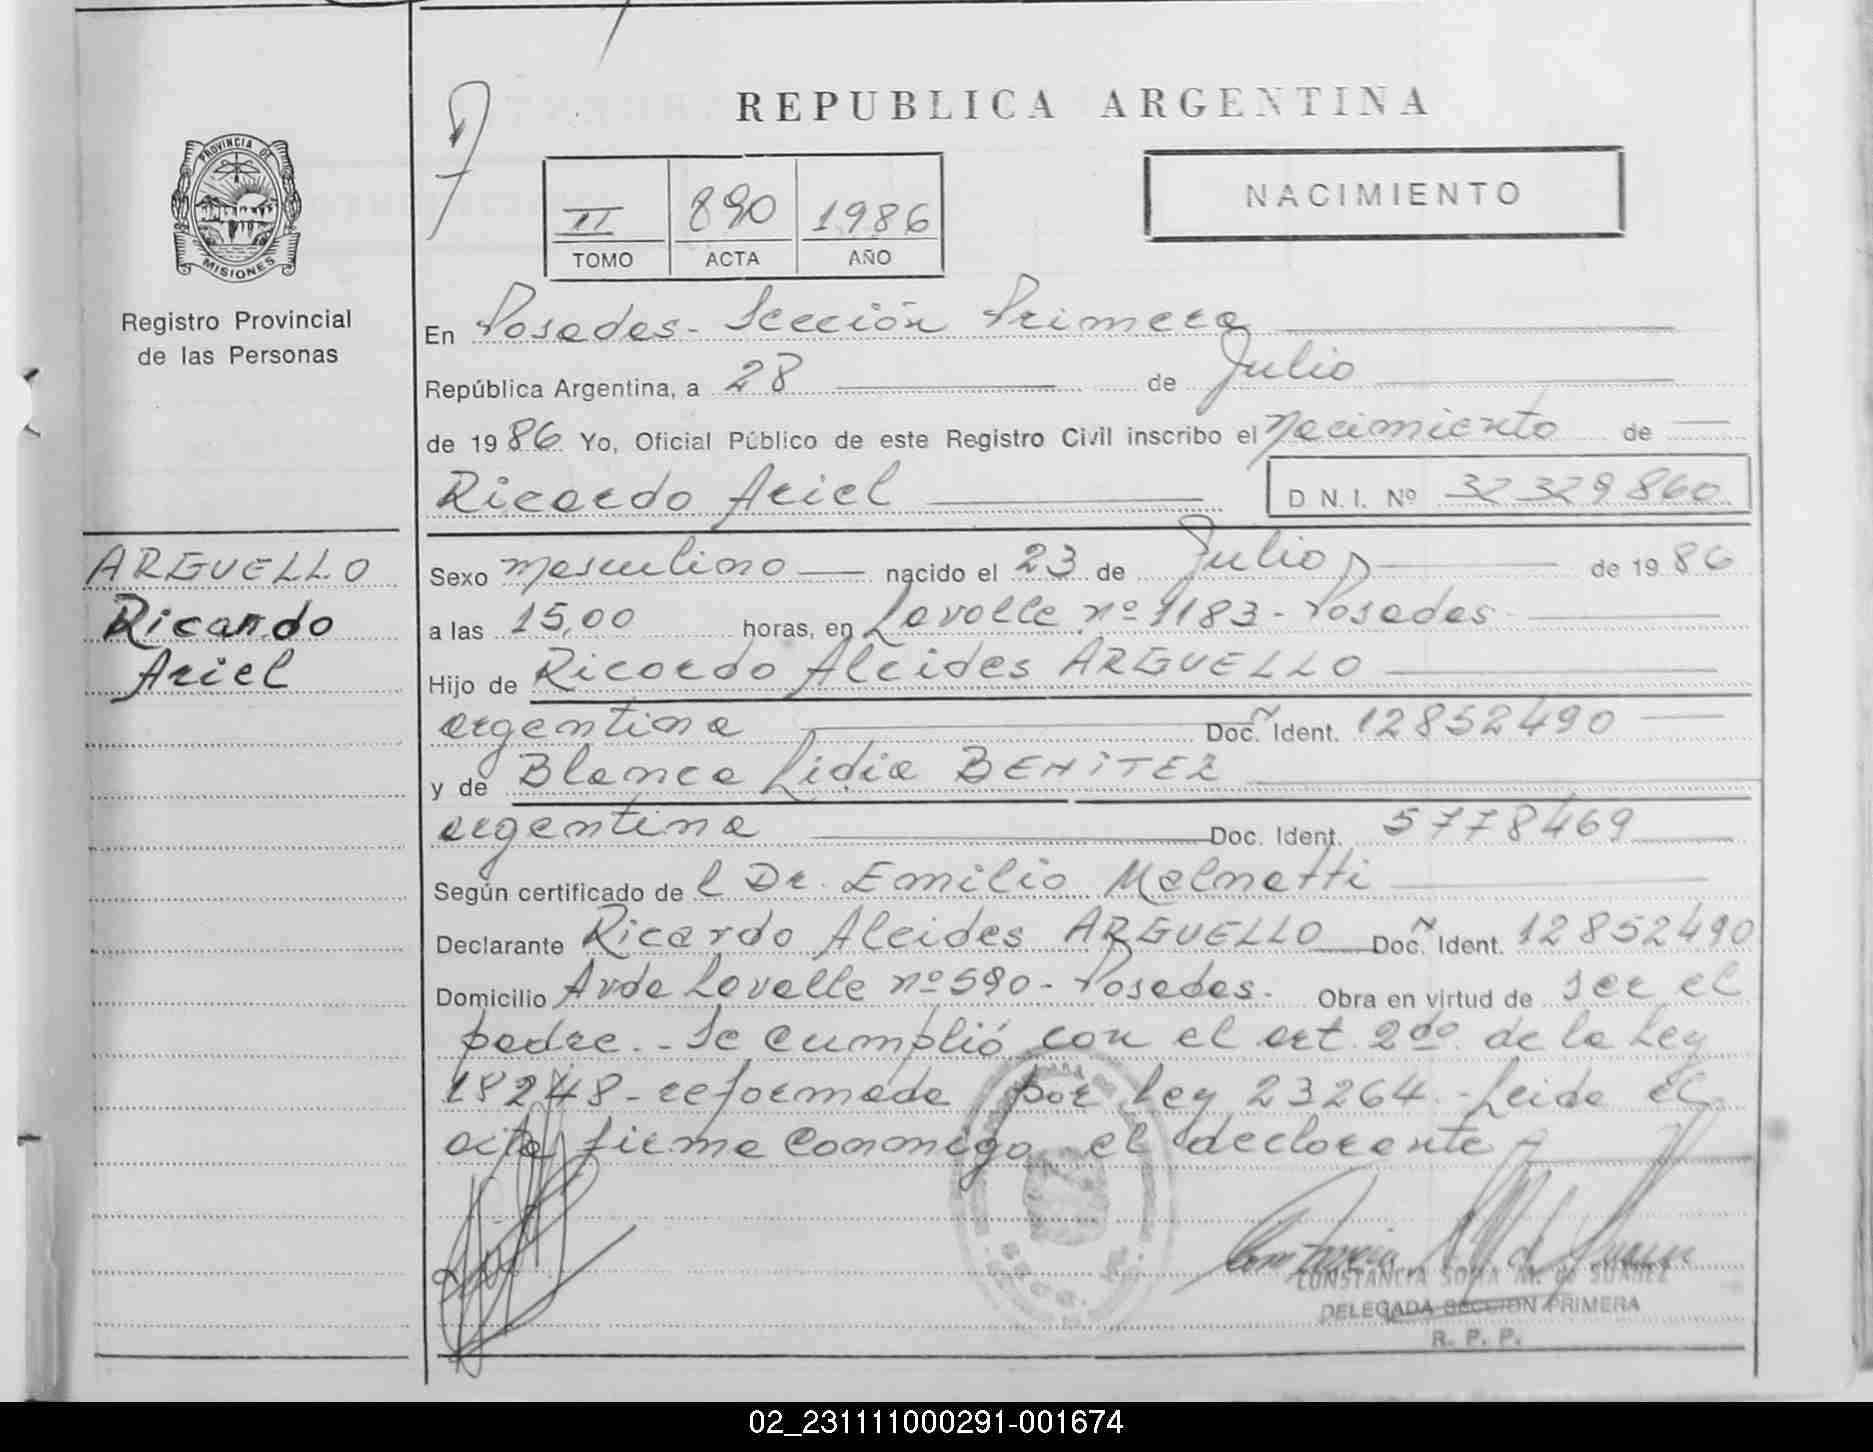 REPUBLICA ARGENTINA
PROVINCIA DE
MISIONES
Registro Provincial
de las Personas
II 890 1986
TOMO ACTA AÑO
NACIMIENTO
En Posadas - Sección Primera
República Argentina, a 28 de Julio
de 1986 Yo, Oficial Público de este Registro Civil inscribo el Nacimiento de
Ricardo Ariel
D N. I. Nº 32329860
ARGUELLO
Ricardo
Ariel
Sexo masculino nacido el 23 de Julio de 1986
a las 15,00 horas, en Lavalle nº 1183 - Posadas
Hijo de Ricardo Alcides ARGUELLO
argentina Doc. Ident. 12852490
y de Blanca Lidia BENITEZ
argentina Doc. Ident. 5778469
Según certificado de l Dr. Emilio Malnatti
Declarante Ricardo Alcides ARGUELLO Doc. Ident. 12852490
Domicilio Avda Lavalle nº 590 - Posadas. Obra en virtud de ser el
padre. - Se cumplió con el art. 2do. de la Ley
18248 - reformada por Ley 23264. - Leida el
acta firma conmigo el declarante
CONSTANCIA SOFIA M. de SUAREZ
DELEGADA SECCION PRIMERA
R. P. P.
02_231111000291-001674